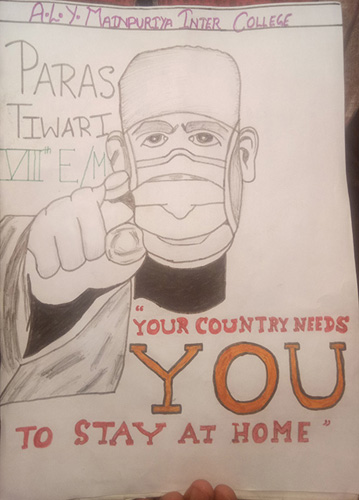 A.L.Y. MAINPURIYA INTER COLLEGE
PARAS
TIWARI
VIIIth E/M
"YOUR COUNTRY NEEDS
YOU
TO STAY AT HOME"